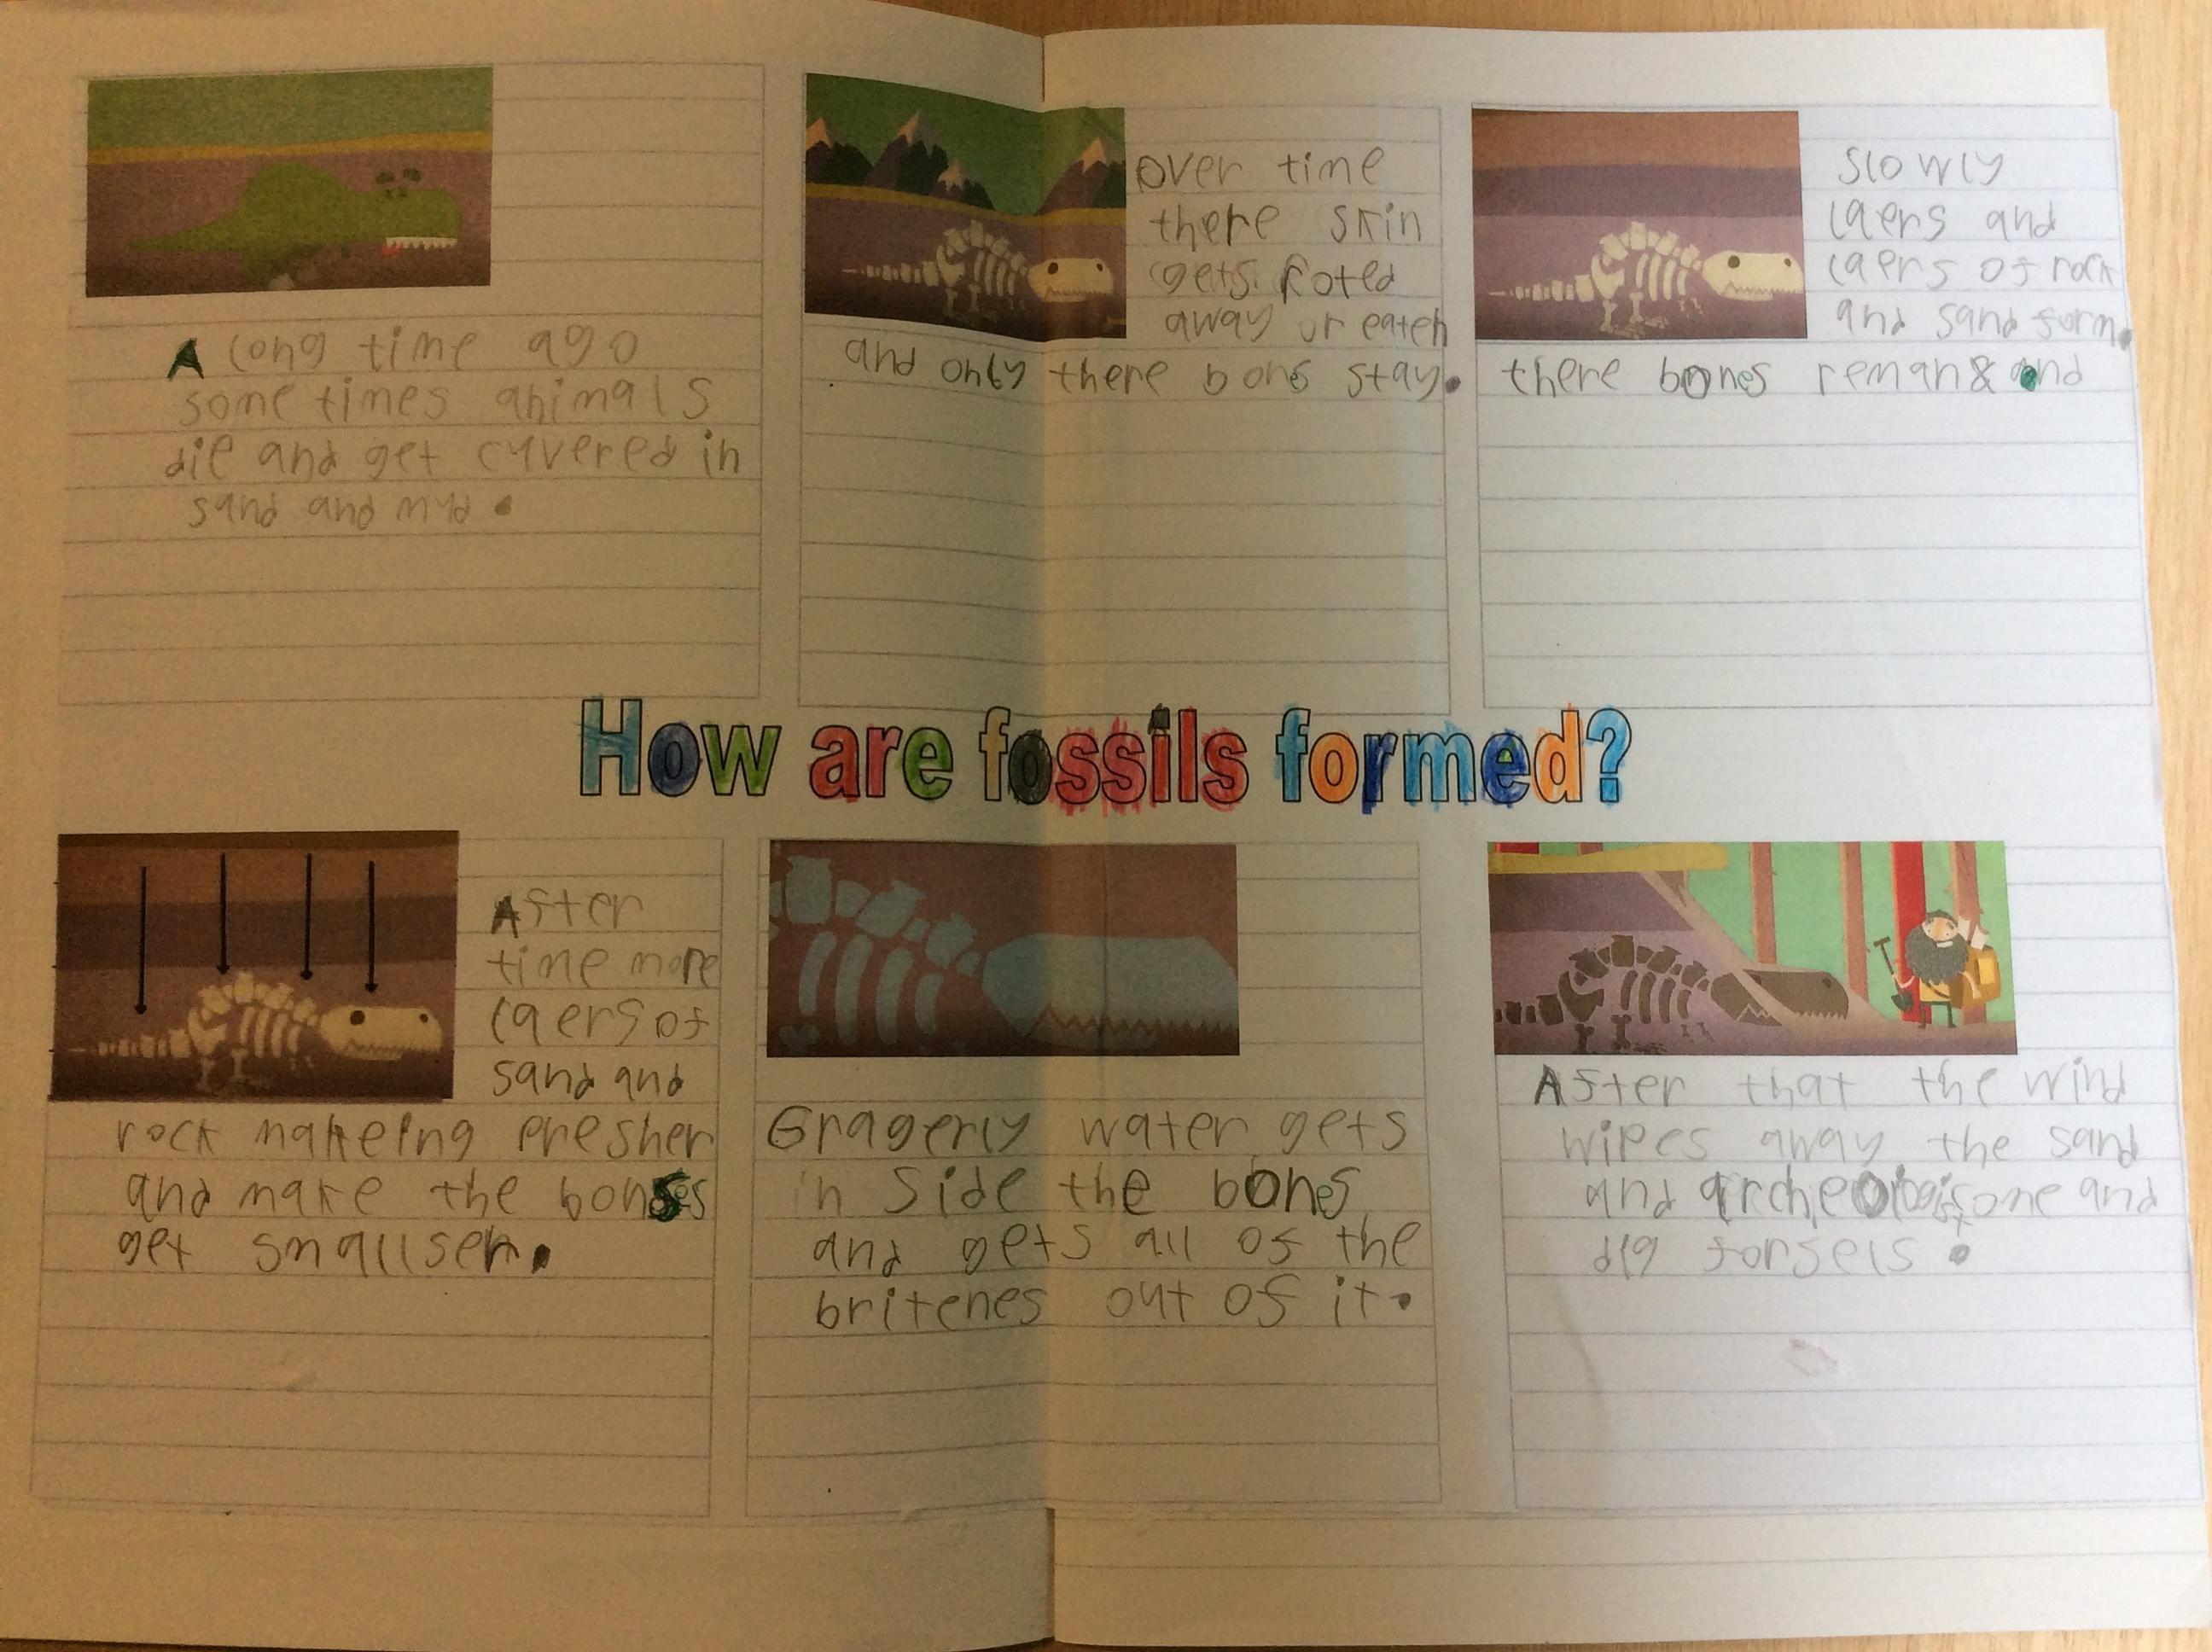 A long time ago
some times animals
die and get cuvered in
sand and mud.
over time
there skin
gets roted
away ur eaten
and only there bones stay.
slowly
laers and
laers of rock
and sand form.
there bones reman & and
How are fossils formed?
After
time more
laers of
sand and
rock makeing presher
and make the bones
get smallser.
Gragerly water gets
in side the bones
and gets all of the
britenes out of it.
After that the wind
wipes away the sand
and archeologist come and
dig forsels.